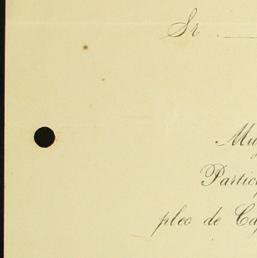 Sr.
Mu
Partic
pleo de Ca